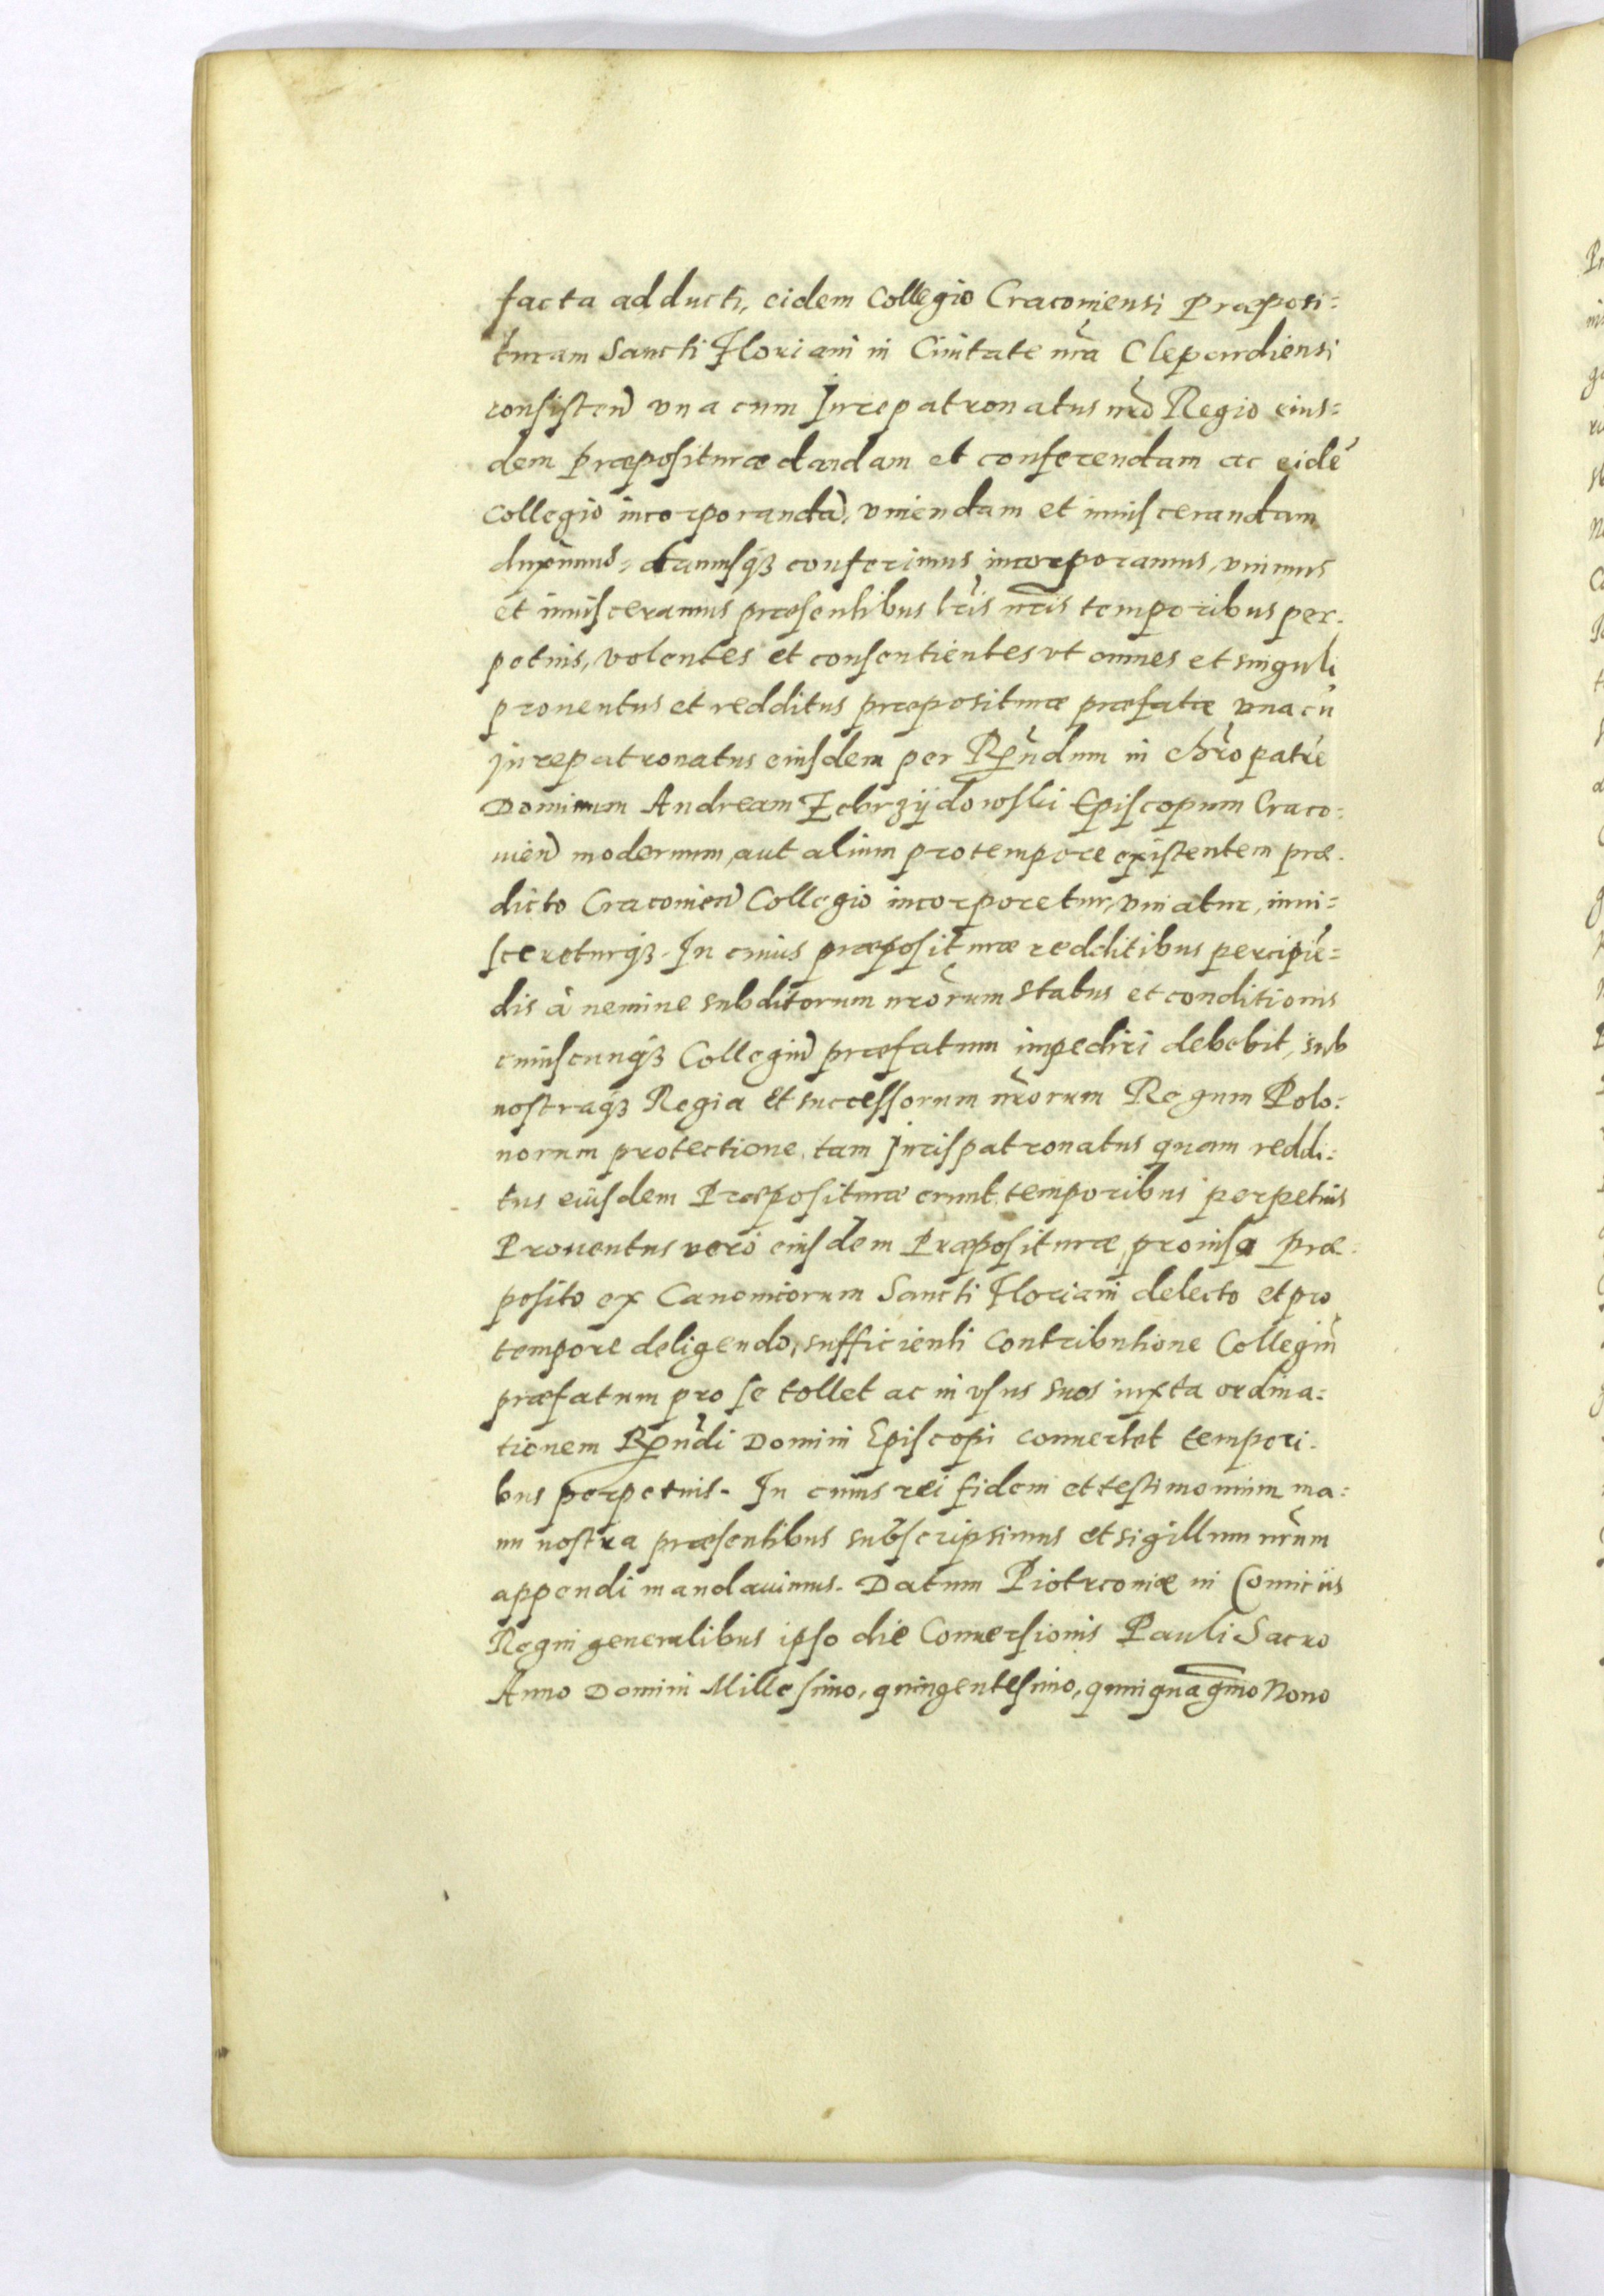 facta adducti, eidem Collegio Cracouiensi Præposi=
turam Sancti Floriani in Ciuitate nr̃a Clepardiensi
consisten̄ vna cum Jurepatronatus nr̃o Regio eius=
dem præposituræ dandam et conferendam ac eidē
Collegio incorporandā, vniendam et inuiscerandam
duximus, damusq́ꝫ conferimus incorporamus, vnimus
et inuisceramus præsentibus lr̃is nr̃is temporibus per=
petuis, volentes et consentientes vt omnes et singuli
prouentus et redditus præposituræ præfatæ vna cū
jurepatronatus eiusdem per Rṇ̃dum in chr̃o patrē
Dominum Andream Zebrzÿdowski Episcopum Craco=
uien̄ modernum, aut alium protempore existentem præ=
dicto Cracouien̄ Collegio incorporetur, vniatur, inui=
scereturq́ꝫ. In cuius præposituræ redditibus percipiē=
dis à nemine subditorum nr̃orum status et conditionis
cuiuscunq́ꝫ Collegiū præfatum impediri debebit, sub
nostraq́ꝫ Regia et successorum nr̃orum Regum Polo=
norum protectione, tam Jurispatronatus quam reddi=
tus eiusdem Præposituræ erunt, temporibus perpetuis
Prouentus verò eiusdem Præposituræ, prouisa præ=
posito ex Canonicorum Sancti Floriani delecto et pro
tempore deligendo, sufficienti contributione Collegiū
præfatum pro se tollet ac in vsus suos iuxta ordina=
tionem Rṇ̃di Domini Episcopi conuertet tempori=
bus perpetuis. In cuius rei fidem et testimonium ma=
nu nostra præsentibus subscripsimus et sigillum nr̃um
appendi mandauimus. Datum Piotrcouiæ in Comiciis
Regni generalibus ipso die Conuersionis Pauli Sacro
Anno Domini Millesimo, quingentesimo, quinquagm̃o Nono